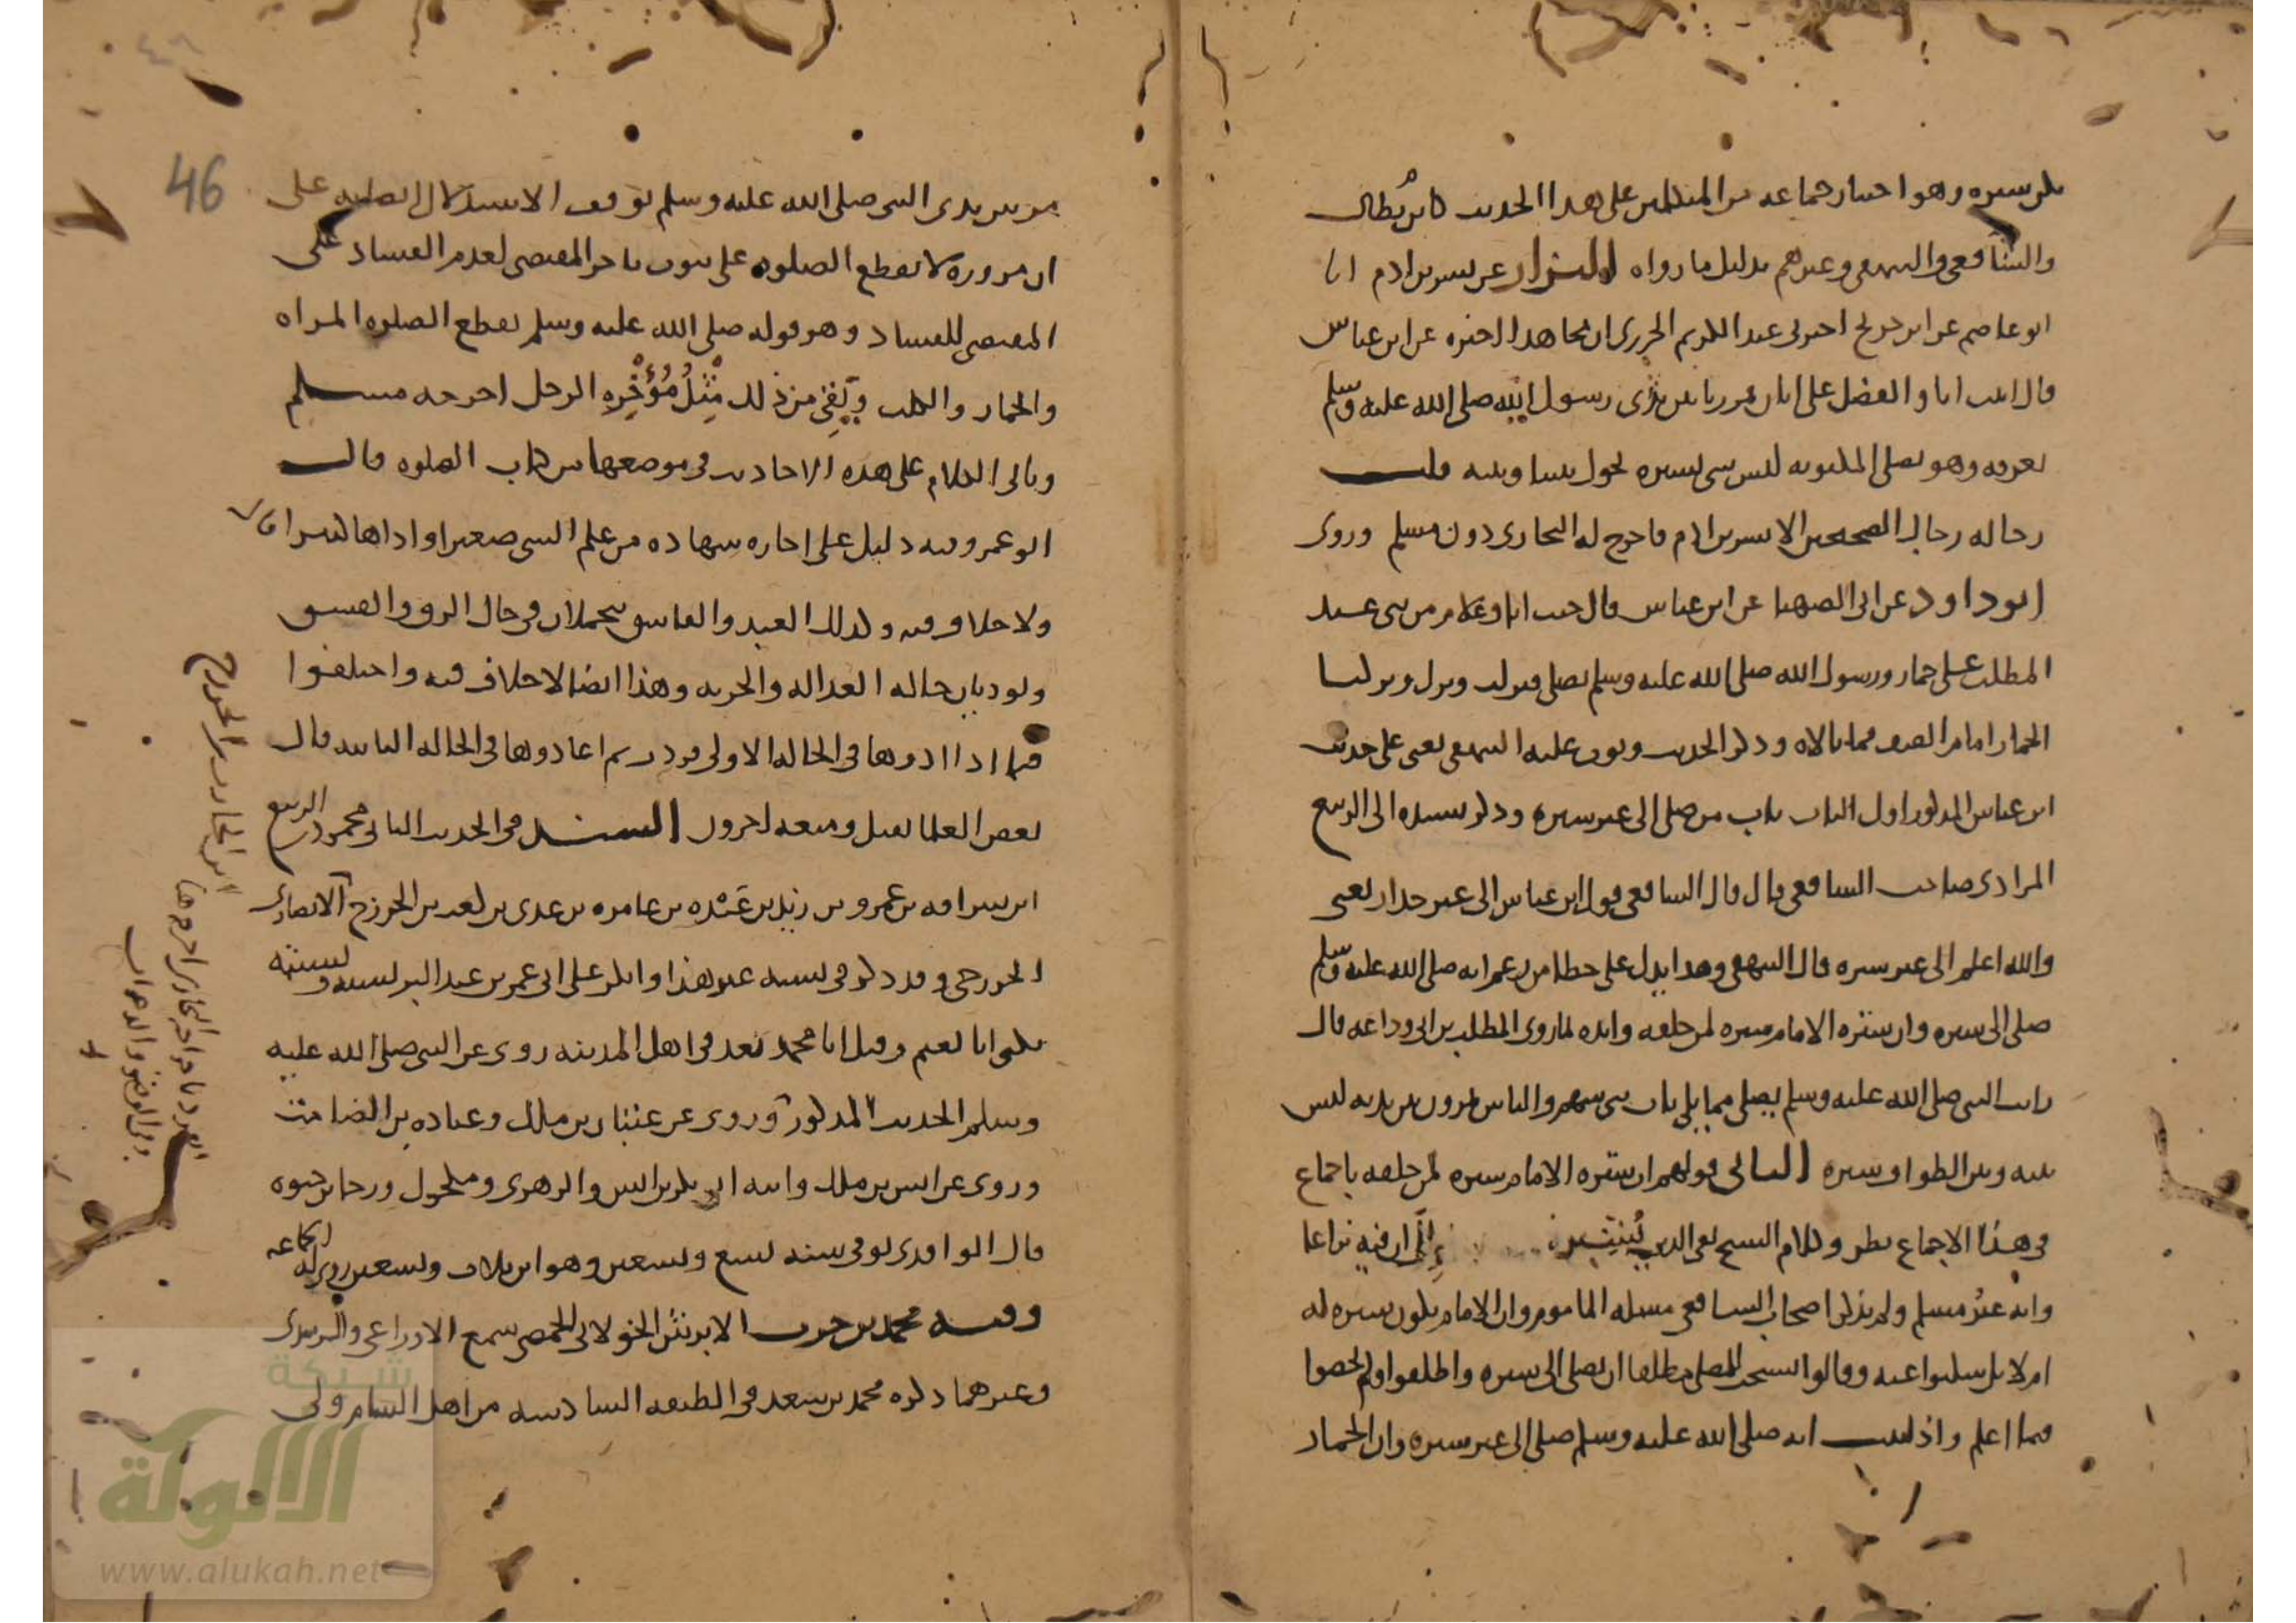 يكن سترة وهو اختيار جماعة من المتكلمين على هذا الحديث كابن بُطال
والشافعي والبيهقي وغيرهم بدليل ما رواه البزار عن بشر بن ادم انا
ابو عاصم عن ابن جريج اخبرني عبد الكريم الجزري ان مجاهدا اخبره عن ابن عباس
قال اتيت انا والفضل على اتان فمررنا بين يدي رسول الله صلى الله عليه وسلم
بعرفة وهو يصلي المكتوبة ليس شي يستره يحول بيننا وبينه قلت
رجاله رجال الصحيحين الا بشر بن ادم فاخرج له البخاري دون مسلم وروى
ابو داود عن ابي الصهبا عن ابن عباس قال جيت انا وغلام من بني عبد
المطلب على حمار ورسول الله صلى الله عليه وسلم يصلي فنزلت ونزل وتركنا
الحمار امام الصف فما بالاه وذكر الحديث وبوب عليه البيهقي يعني على حديث
ابن عباس المذكور اول الباب باب من صلى الى غير سترة وذكر بسنده الى الربيع
المرادي صاحب الشافعي قال قال الشافعي قول ابن عباس الى غير جدار يعني
والله اعلم الى غير سترة قال البيهقي وهذا يدل على خطا من زعم انه صلى الله عليه وسلم
صلى الى سترة وان سترة الامام سترة لمن خلفه وايده لما روى المطلب بن ابي وداعة قال
رايت النبي صلى الله عليه وسلم يصلي مما يلي باب بني سهم والناس يمرون بين يديه ليس
بينه وبين الطواف سترة الثاني قولهم ان سترة الامام سترة لمن خلفه باجماع
في هذا الاجماع نظر وكلام الشيخ تقي الدين الى ان فيه نزاعا
وانه غير مسلم ولم يذكر اصحاب الشافعي مسلة الماموم وان الامام يكون سترة له
ام لا بل سكتوا عنه وقالوا يستحب للمصلي مطلقا ان يصلي الى سترة واطلقوا ولم يخصوا
فيما اعلم واذ ثبت انه صلى الله عليه وسلم صلى الى غير سترة وان الحمار
46
مر بين يدي النبي صلى الله عليه وسلم توقف الاستدلال على
ان مروره لا يقطع الصلوة على ثبوت تاخر المقتضي لعدم الفساد على
المقتضي للفساد وهو قوله صلى الله عليه وسلم يقطع الصلوة المراة
والحمار والكلب ويَقِي من ذلك مِثْلُ مُؤْخِرَةِ الرحل اخرجه مسلم
وياتي الكلام على هذه الاحاديث في موضعها من كتاب الصلوة قال
ابو عمر وفيه دليل على اجازة شهادة من علم الشي صغيرا واداها كبيرا قال
ولا خلاف فيه وكذلك العبد والفاسق يتحملان في حال الرق والفسق
ويوديان حالة العدالة والحرية وهذا ايضا لا خلاف فيه واختلفوا
فيما اذا ادوها في الحالة الاولى فردت ثم اعادوها في الحالة الثانية قال
بعض العلما تقبل ومنعه اخرون السند في الحديث الثاني محمود بن الربيع
ابن سراقة بن عمرو بن زيد بن عَبْدة بن عامرة بن عدي بن كعب بن الخزرج الانصاري
الخزرجي وقد ذكر في نسبه غير هذا وانكر على ابي عمر بن عبد البر نسبه
يكنى ابا نعيم وقيل ابا محمد يعد في اهل المدينة روى عن النبي صلى الله عليه
وسلم الحديث المذكور وروى عن عتبان بن ملك وعبادة بن الصامت
وروى عن انس بن ملك وابنه ابو بكر بن انس والزهري ومكحول ورجا بن حيوة
قال الواقدي توفي سنة تسع وتسعين وهو ابن ثلاث وتسعين روى له الجماعة
وفيه محمد بن حرب الابرش الخولاني الحمصي سمع الاوزاعي والزبيدي
وغيرهما ذكره محمد بن سعد في الطبقة السادسة من اهل الشام ولي
ابن الحارث بن الخزرج
شبكة
الألوكة
www.alukah.net